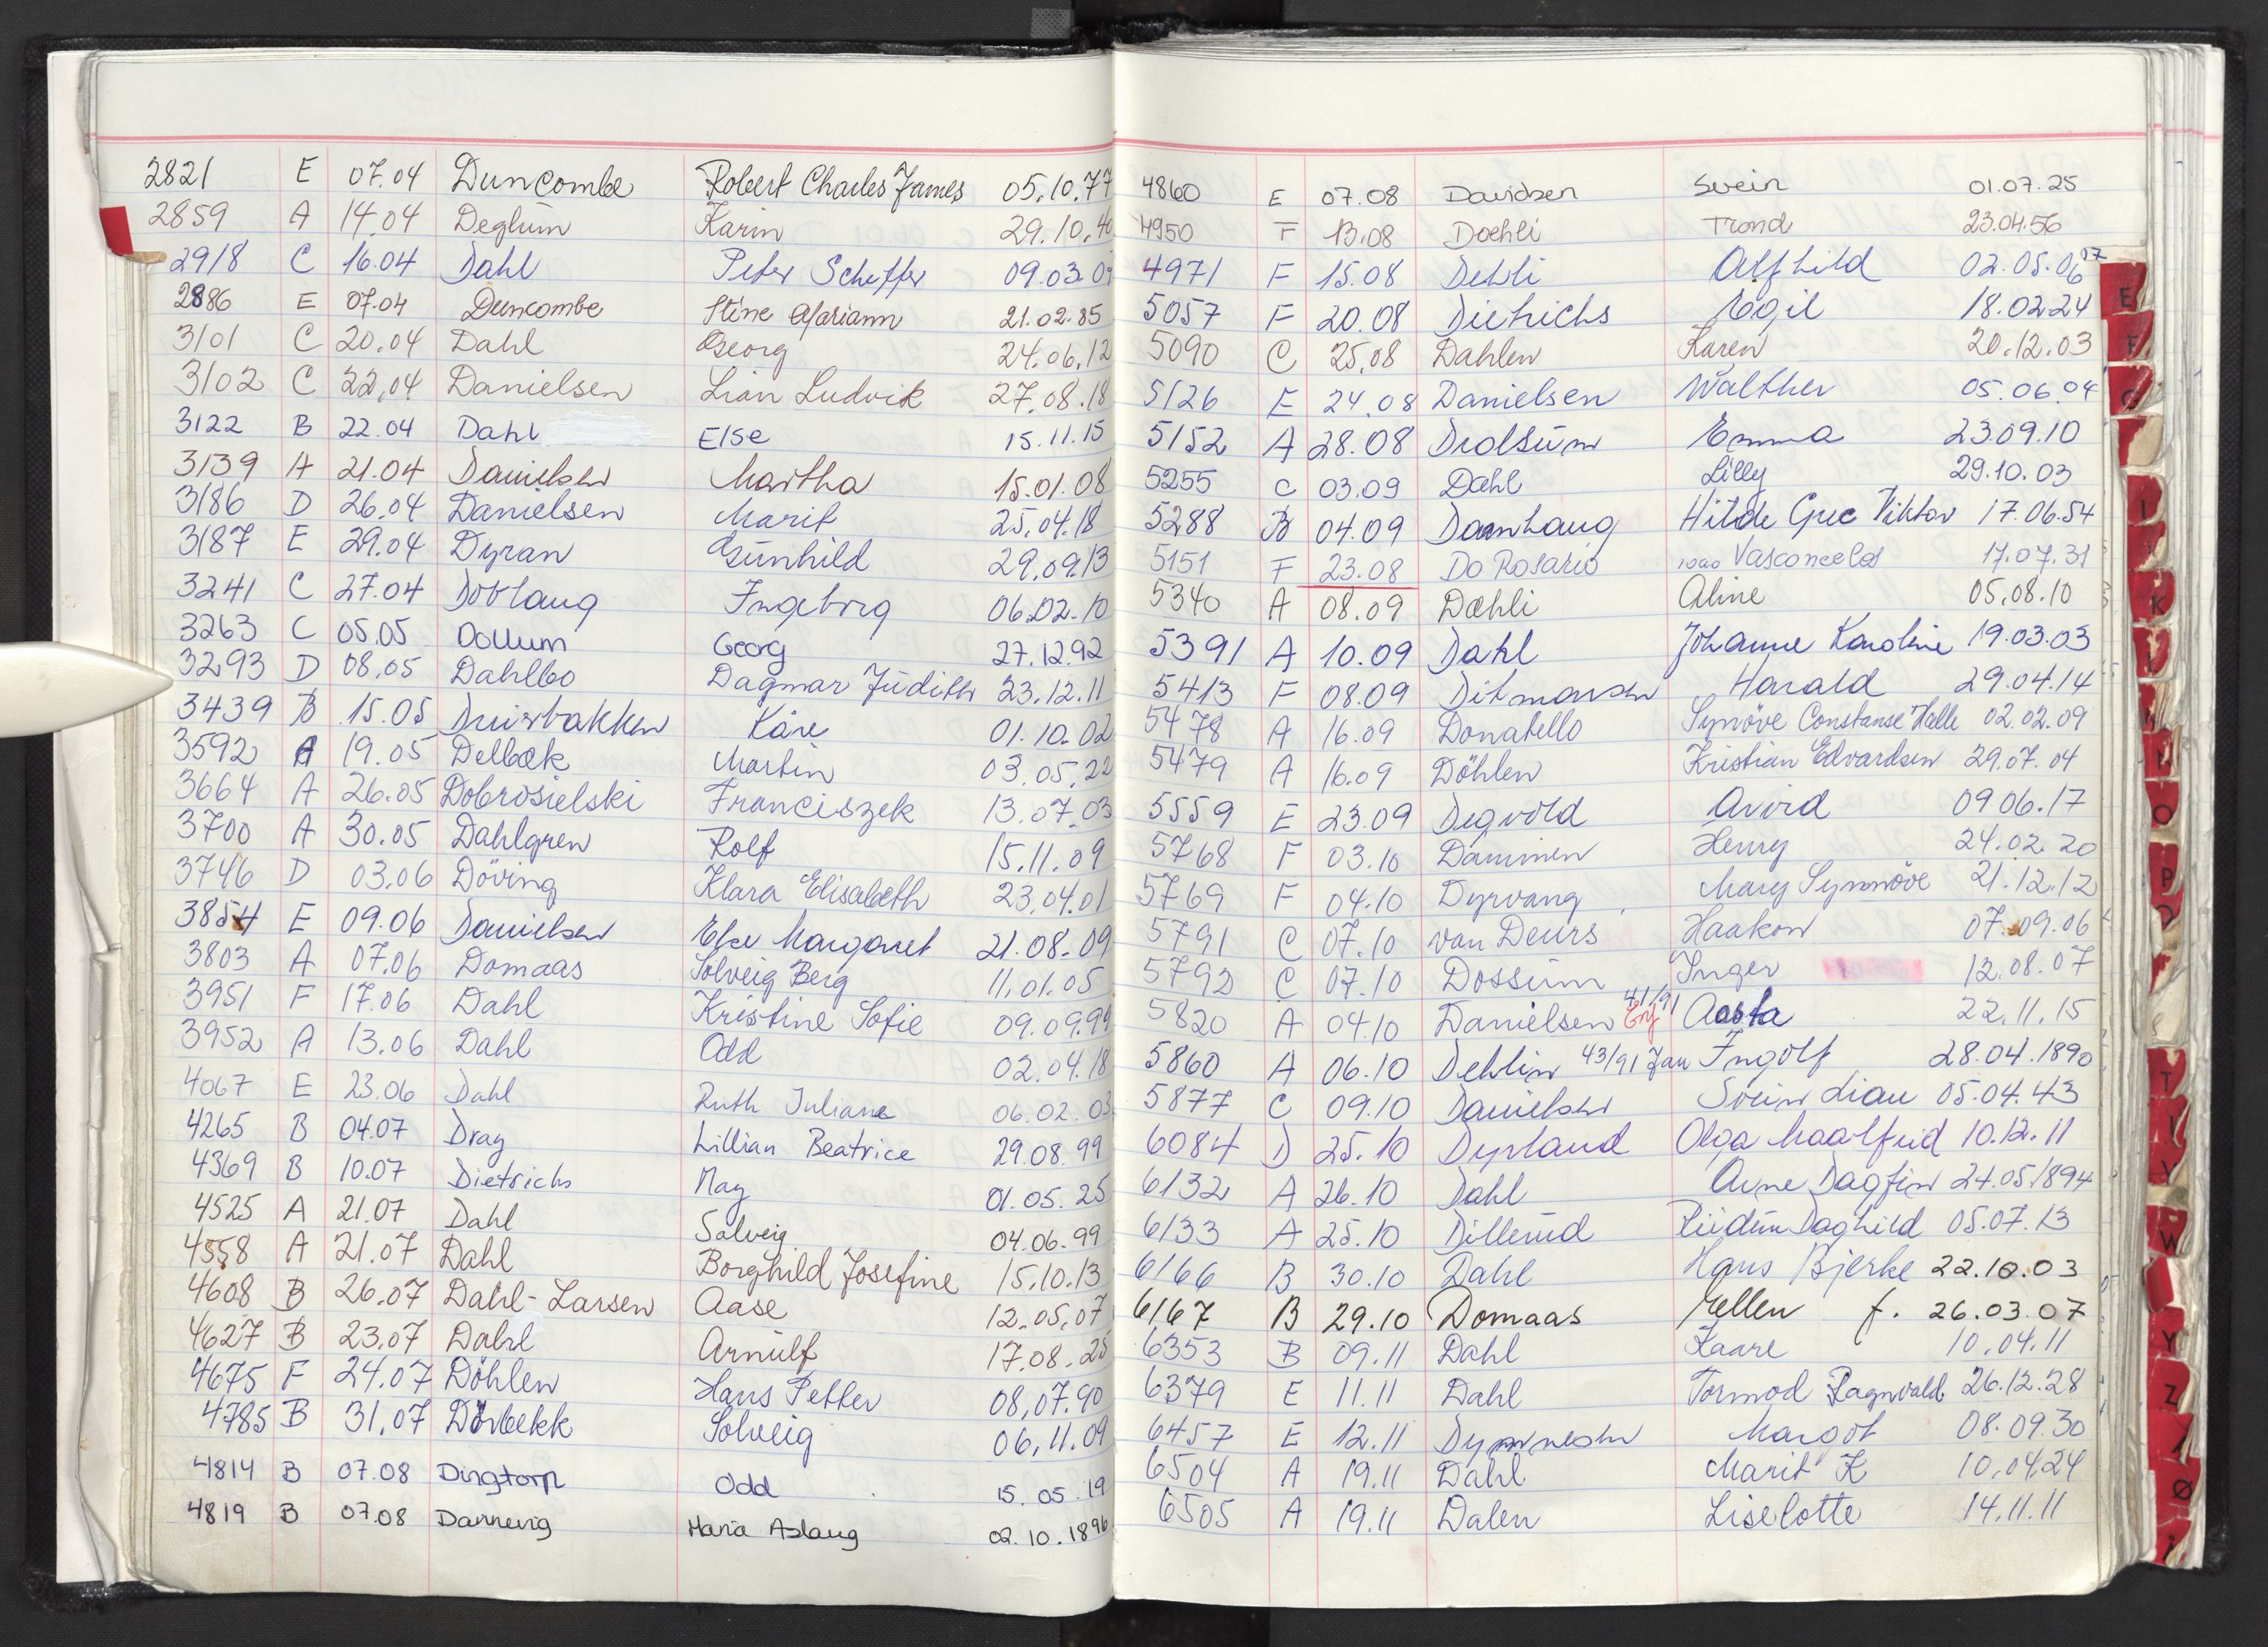 2821 E 07.04 Duncombe Robert Charles James 05.10.77
2859 A 14.04 Deglum Karin 29.10.40
2918 C 16.04 Dahl Peter Scheffer 09.03.0
2886 E 07.04 Duncombe Stine Mariann 21.02.85
3101 C 20.04 Dahl Georg 24.06.12
3102 C 22.04 Danielsen Lian Ludvik 27.08.18
3122 B 22.04 Dahl Else 15.11.15
3139 A 21.04 Danielsen Martha 15.01.08
3186 D 26.04 Danielsen Marit 25.04.18
3187 E 29.04 Dyran Gunhild 29.09.13
3241 C 27.04 Dovlaug Ingeborg 06.02.10
3263 C 05.05 Dollum Georg 27.12.92
3293 D 08.05 Dahlbo Dagmar Judith 23.12.11
3439 B 15.05 Kåre 01.10.02
3592 A 19.05 Delbæk Martin 03.05.22
3664 A 26.05 Dobrosielski Franciszek 13.07.03
3700 A 30.05 Dahlgren Rolf 15.11.09
3746 D 03.06 Döving Klara Elisabeth 23.04.01
3854 E 09.06 Danielsen Else Margaret 21.08.09
3803 A 07.06 Domaas Solveig Berg 11.01.05
3951 F 17.06 Dahl Kristine Sofie 09.09.99
3952 A 13.06 Dahl Odd 02.04.18
4067 E 23.06 Dahl Ruth Juliane 06.02.03
4265 B 04.07 Drag Lillian Beatrice 29.08.99
4369 B 10.07 Dietrichs May 01.05.25
4525 A 21.07 Dahl Solveig 04.06.99
4558 A 21.07 Dahl Borghild Josefine 15.10.13
4608 B 26.07 Dahl-Larsen Aase 12.05.07
4627 B 23.07 Dahl Arnulf 17.08.25
4675 F 24.07 Döhlen Hans Petter 08.07.90
4785 B 31.07 Dörbekk Solveig 06.11.09
4814 B 07.08 Dingtorp Odd 15.05.19
4819 B 07.08 Dannevig Maria Aslaug 02.10.1896
4860 E 07.08 Davidsen Svein 01.07.25
4950 F 13.08 Dæhli Trond 23.04.56
4971 F 15.08 Dehli Alfhild 02.05.06 17
5057 F 20.08 Dietrichs Egil 18.02.24
5090 C 25.08 Dahlen Karen 20.12.03
5126 E 24.08 Danielsen Walther 05.06.04
5152 A 28.08 Drolsum Emma 23.09.10
5255 C 03.09 Dahl Lilly 29.10.03
5288 B 04.09 Damhaug Hilde Gree Viktor 17.06.54
5151 F 23.08 Do Rosario Joao Vasconcelos 17.07.31
5340 A 08.09 Dæhli Aline 05.08.10
5391 A 10.09 Dahl Johanne Karoline 19.03.03
5413 F 08.09 Ditmansen Harald 29.04.14
5478 A 16.09 Donatello Synnöve Constanse Halle 02.02.09
5479 A 16.09 Döhlen Kristian Edvardsen 29.07.04
5559 E 23.09 Degvold Arvid 09.06.17
5768 F 03.10 Dammen Henry 24.02.20
5769 F 04.10 Dyrvang Mary Synnöve 21.12.12
5791 C 07.10 van Deurs Haakon 07.09.06
5792 C 07.10 Dossum Inger 12.08.07
5820 A 04.10 Danielsen 41/91 Aasta 22.11.15
5860 A 06.10 Dehlin 43/91 Jan Ingolf 28.04.1890
5877 C 09.10 Danielsen Svein Lian 05.04.43
6084 D 25.10 Dyrland Olga Maalfrid 10.12.11
6132 A 26.10 Dahl Arne Dagfin 24.05.1894
6133 A 25.10 Dillerud Reidun Daghild 05.07.13
6166 B 30.10 Dahl Hans Bjerke 22.10.03
6167 B 29.10 Domaas Ellen f. 26.03.07
6353 B 09.11 Dahl Kaare 10.04.11
6379 E 11.11 Dahl Tormod Ragnvald 26.12.28
6457 E 12.11 Margot 08.09.30
6504 A 19.11 Dahl Marit K 10.04.24
6505 A 19.11 Dalen Liselotte 14.11.11
E
F
G
I
K
O
P
T
V
W
Y
Z
Ø